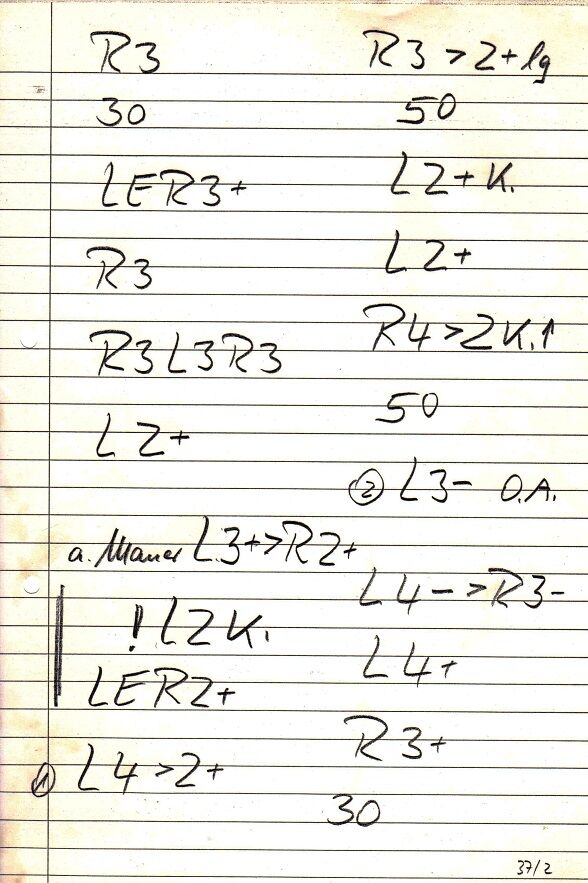 R3
30
LER3+
R3
R3L3R3
L2+
a. Mauer L3+>R2+
! L2 K.
LER2+
① L4>2+
R3>2+ lg
50
L2+ K.
L2+
R4>2 K.↑
50
② L3- O.A.
L4->R3-
L4+
R3+
30
37/2